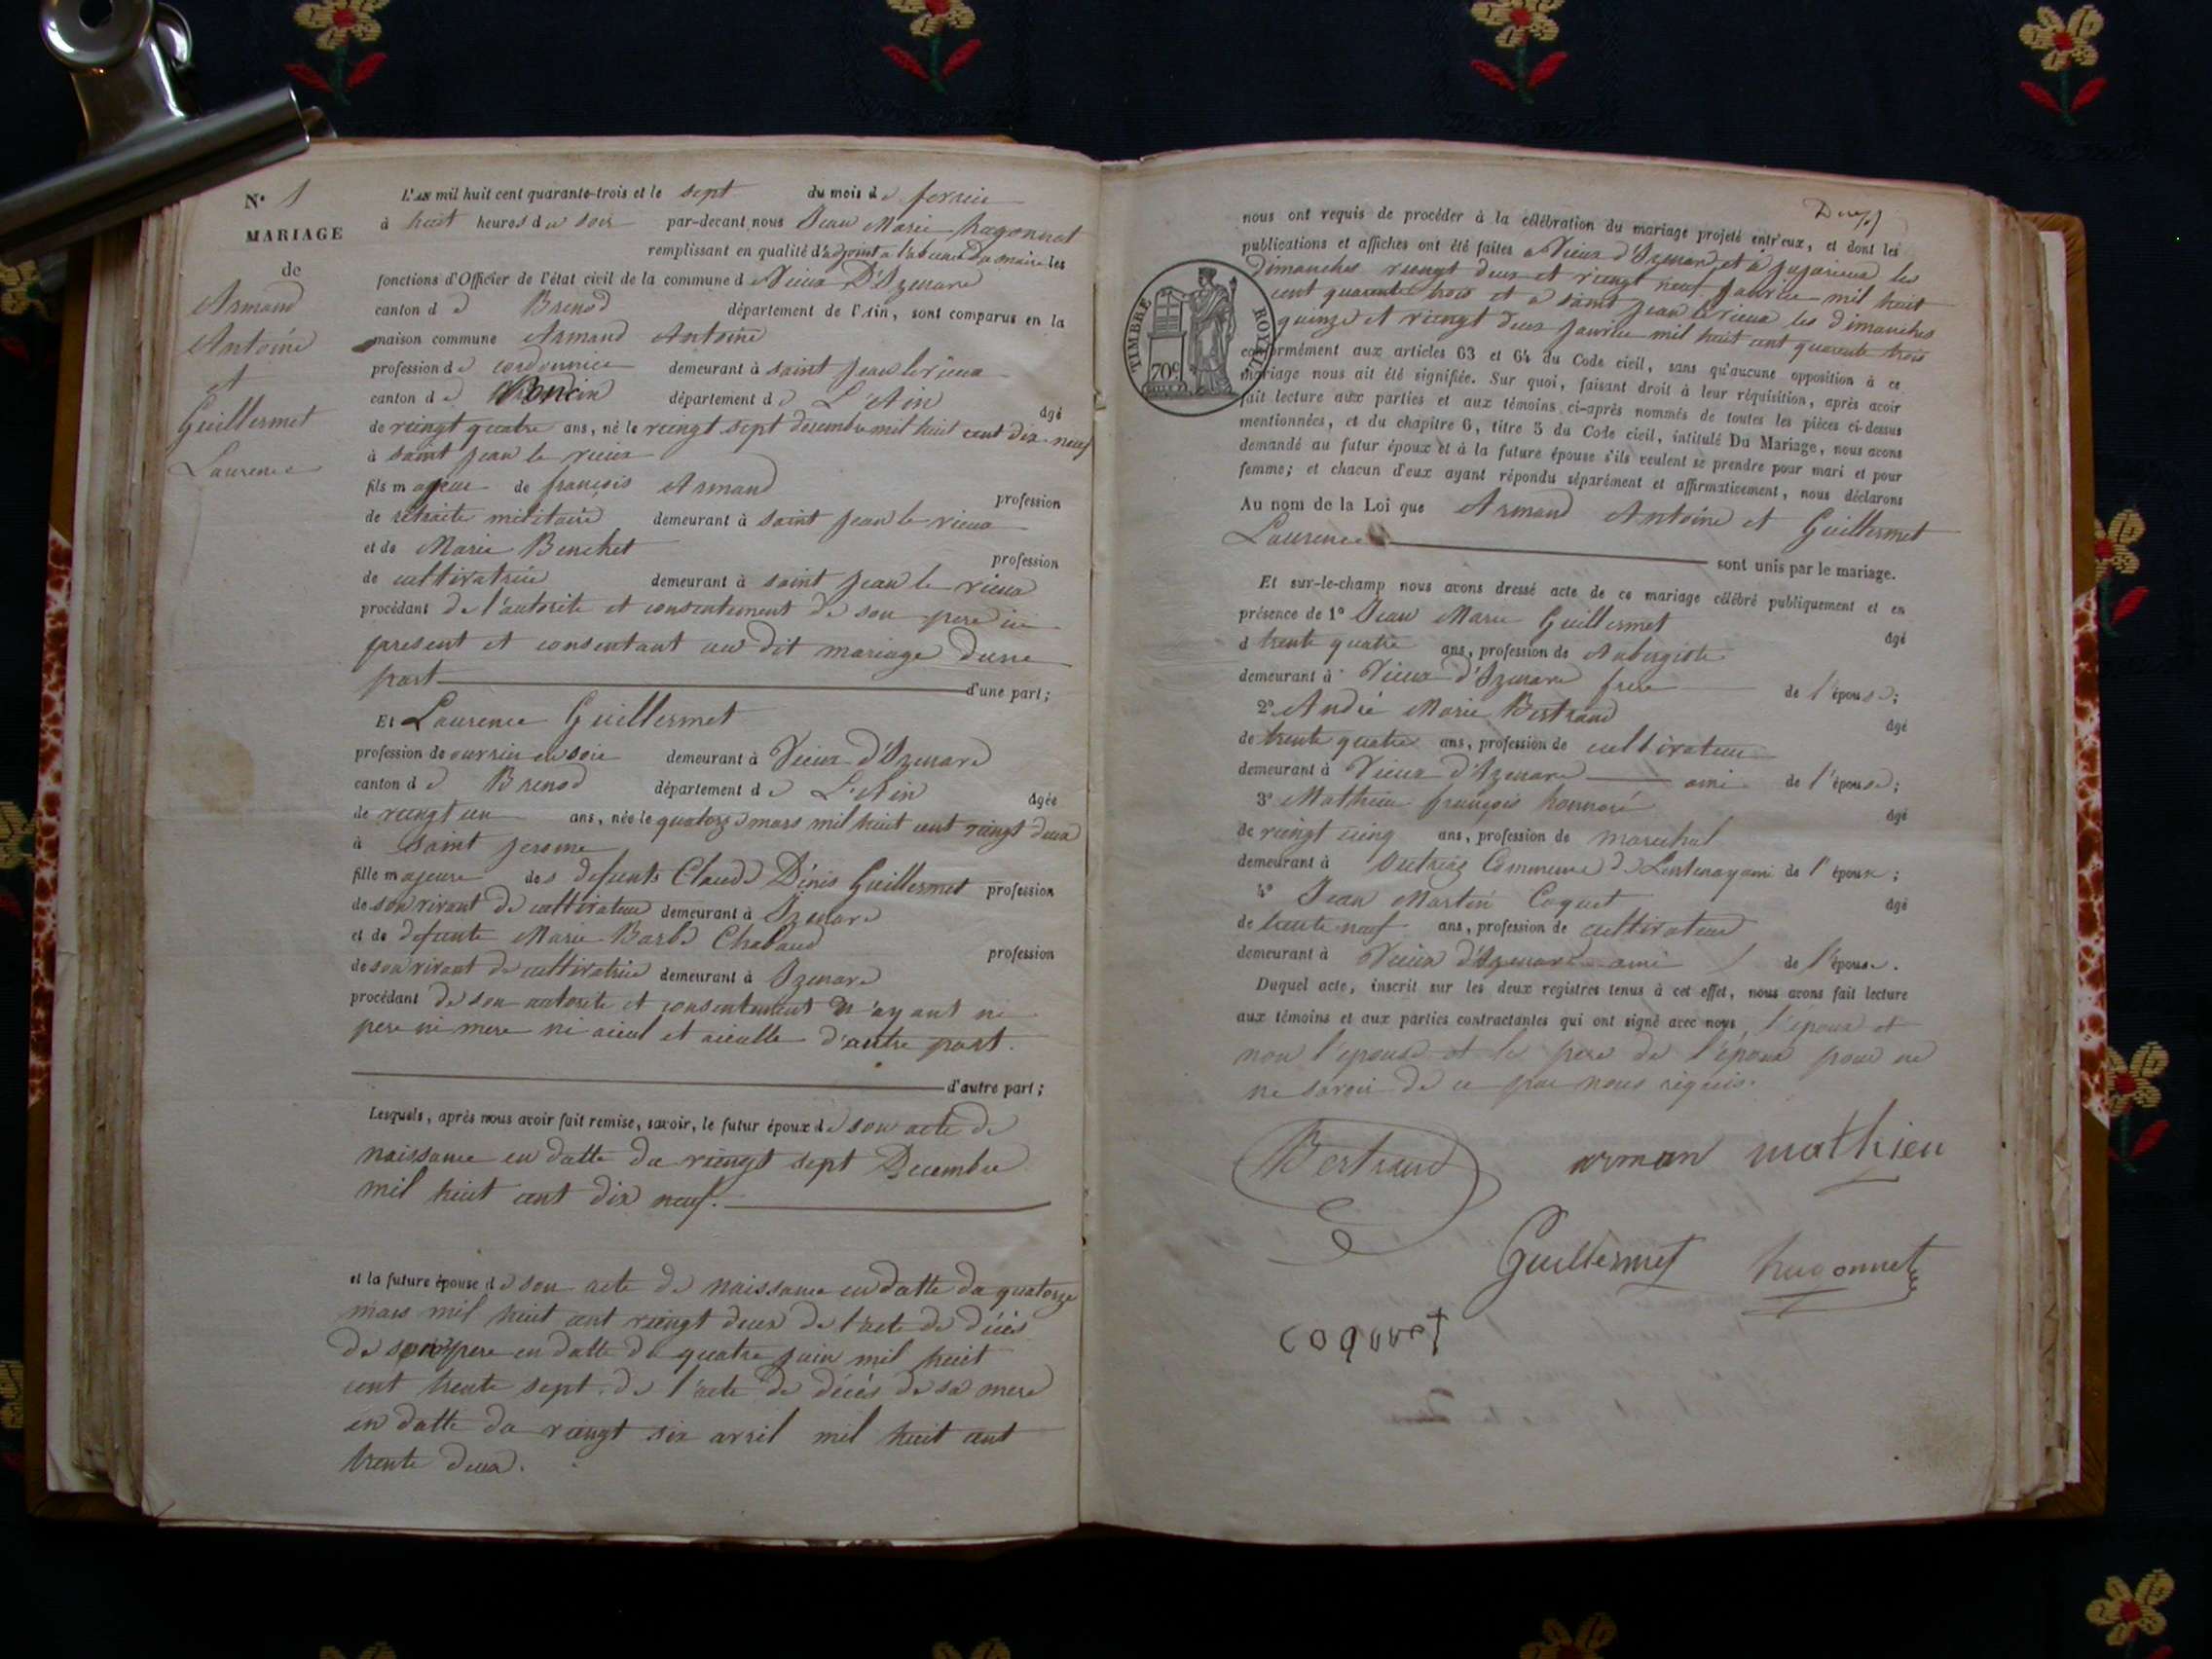 N° 1
MARIAGE
de
Armand
Antoine
et
Guillermet
Laurence
L'an mil huit cent quarante-trois et le sept du mois de fevrier
à huit heures du soir par-devant nous Jean Marie hugonnet
remplissant en qualité d'adjoint a l'absence du maire les
fonctions d'Officier de l'état civil de la commune d Vieux D'Izenave
canton d e Brenod département de l'Ain, sont comparus en la
maison commune Armand Antoine
profession de cordonnier demeurant à saint jean le vieux
canton d e Poncin département d e L'Ain âgé
de vingt quatre ans, né le vingt sept decembre mil huit cent dix neuf
à saint jean le vieux
fils majeur de françois Armand profession
de retraite militaire demeurant à saint jean le vieux
et de Marie Benchet profession
de cultivatrice demeurant à saint jean le vieux
procédant de l'autorite et consentement de son pere ici
present et consentant au dit mariage dune
part d'une part;
Et Laurence Guillermet
profession de ouvriere en soie demeurant à Vieux d'Izenave
canton d e Brenod département d e L'Ain âgée
de vingt un ans, née le quatorze mars mil huit cent vingt deux
à saint jerome
fille majeure des defunts Claude Dénis Guillermet profession
de son vivant de cultivateur demeurant à Izenave
et de defunte Marie Barbe Chabaud profession
de son vivant de cultivatrice demeurant à Izenave
procédant de son autorite et consentement n'ayant ni
pere ni mere ni aieul et aieulle d'autre part.
d'autre part;
Lesquels, après nous avoir fait remise, savoir, le futur époux de son acte de
naissance en datte du vingt sept Decembre
mil huit cent dix neuf.
et la future épouse de son acte de naissance en datte du quatorze
mars mil huit cent vingt deux de l'acte de décès
de son pere en datte du quatre juin mil huit
cent trente sept de l'acte de décés de sa mere
en datte du vingt six avril mil huit cent
trente deux.
nous ont requis de procéder à la célébration du mariage projeté entr'eux, et dont les
publications et affiches ont été faites a Vieux d'Izenave et a jujurieux les
dimanches vingt deux et vingt neuf janvier mil huit
cent quarante trois et a saint jean le vieux les dimanches
quinze et vingt deux janvier mil huit cent quarante trois
conformément aux articles 63 et 64 du Code civil, sans qu'aucune opposition à ce
mariage nous ait été signifiée. Sur quoi, faisant droit à leur réquisition, après avoir
fait lecture aux parties et aux témoins ci-après nommés de toutes les pièces ci-dessus
mentionnées, et du chapitre 6, titre 5 du Code civil, intitulé Du Mariage, nous avons
demandé au futur époux et à la future épouse s'ils veulent se prendre pour mari et pour
femme; et chacun d'eux ayant répondu séparément et affirmativement, nous déclarons
Au nom de la Loi que Armand Antoine et Guillermet
Laurence sont unis par le mariage.
Et sur-le-champ nous avons dressé acte de ce mariage célébré publiquement et en
présence de 1° Jean Marie Guillermet âgé
d trente quatre ans, profession de Aubergiste
demeurant à Vieux d'Izenave frere de l'épouse;
2° André Marie Bertrand âgé
de trente quatre ans, profession de cultivateur
demeurant à Vieux d'Izenave ami de l'épouse;
3° Mathieu françois honnoré âgé
de vingt cinq ans, profession de marechal
demeurant à Outriaz Commune de Lantenay ami de l'époux;
4° Jean Martin Coquet âgé
de trente neuf ans, profession de cultivateur
demeurant à Vieux d'Izenave ami de l'épouse.
Duquel acte, inscrit sur les deux registres tenus à cet effet, nous avons fait lecture
aux témoins et aux parties contractantes qui ont signé avec nous l'époux et
non l'épouse et le pere de l'époux pour ne
ne savoir de ce par nous requis.
TIMBRE ROYAL
70c
Bertrand arman mathieu
Guillermet hugonnet
coquuet